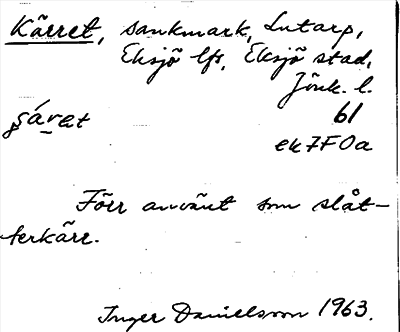 Kärret, sankmark, Lutarp,
Eksjö lfs, Eksjö stad,
Jönk. l.
61
ek7F0a
Förr använt som slåt-
terkärr.
Inger Danielsson 1963.